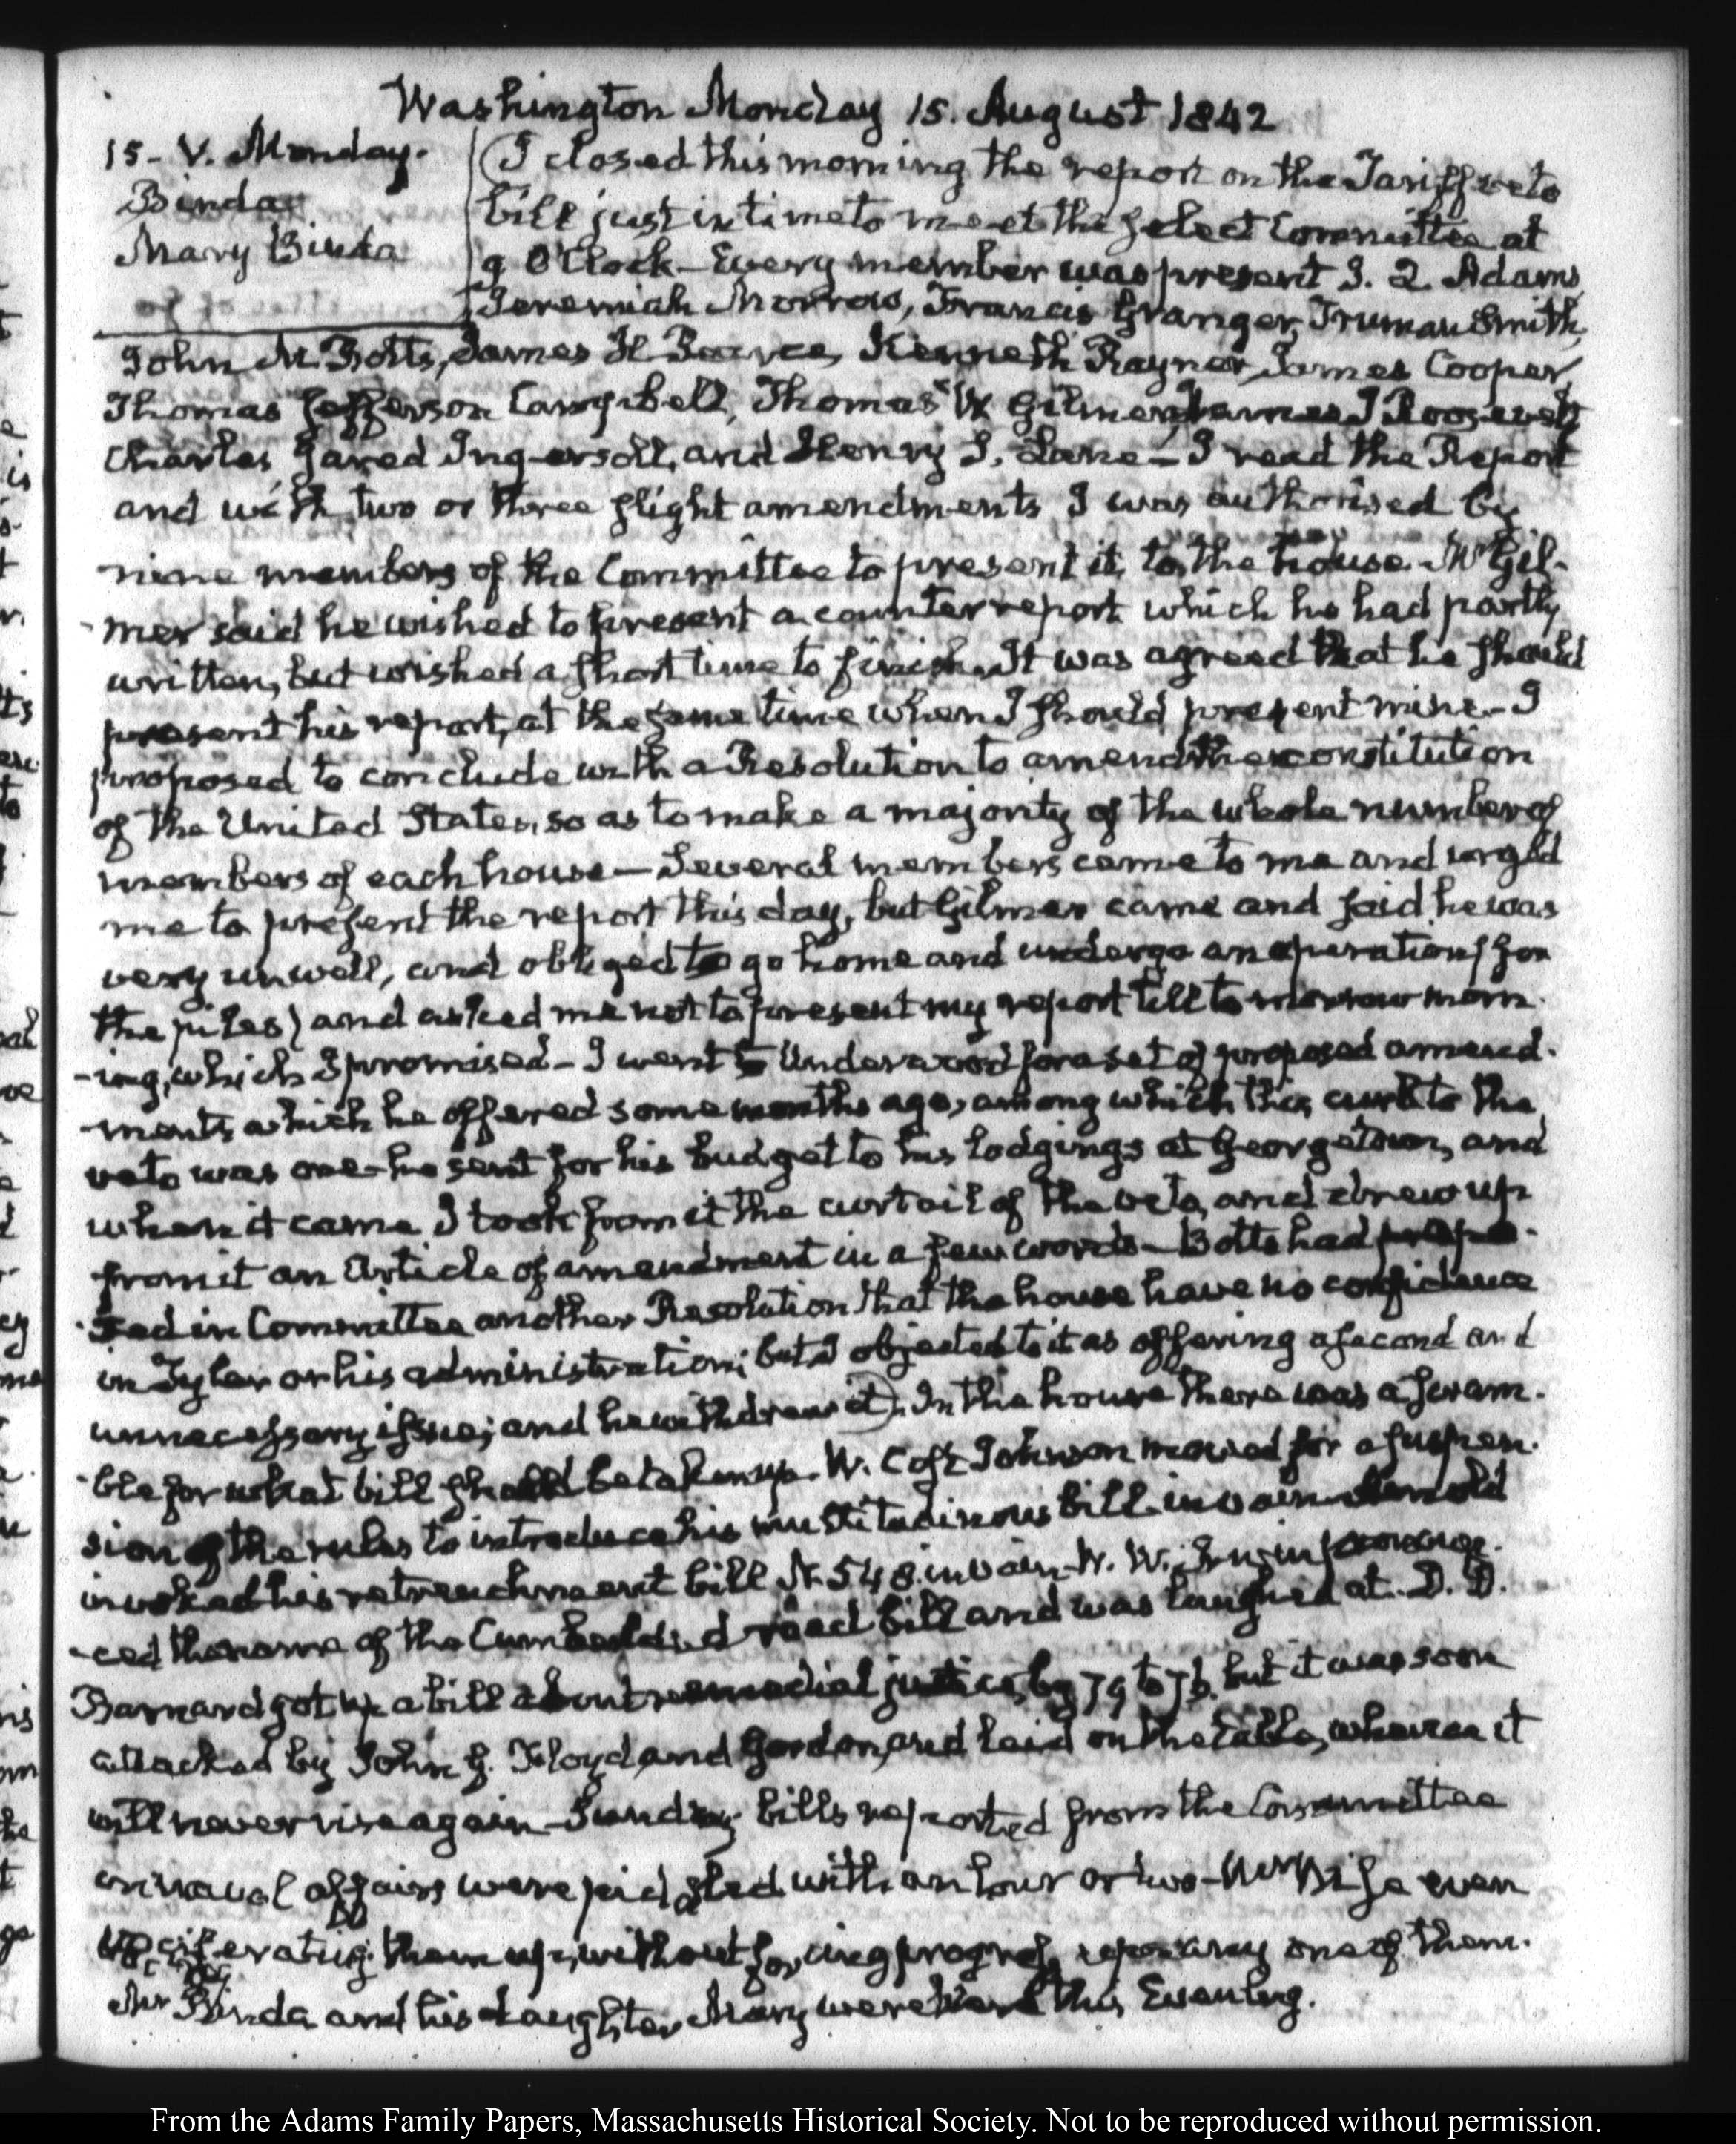 Washington Monday 15. August 1842
15. V. Monday.
Binda
Mary Binda
I closed this morning the report on the Tariff veto
bill just in time to meet the Select Committee at
9 O'Clock – Every member was present J. Q. Adams
Jeremiah Morrow, Francis Granger, Truman Smith,
John M Botts, James A Pearce, Kenneth Rayner, James Cooper,
Thomas Jefferson Campbell, Thomas W Gilmer, James I Roosevelt
Charles Jared Ingersoll, and Henry S. Lane – I read the Report
and with two or three slight amendments I was authorised by
nine members of the Committee to present it to the house. Mr Gil-
-mer said he wished to present a counter report which he had partly
written, but wished a short time to finish. It was agreed that he should
present his report, at the same time when I should present mine – I
proposed to conclude with a Resolution to amend the constitution
of the United States, so as to make a majority of the whole number of
members of each house – Several members came to me and urged
me to present the report this day, but Gilmer came and said he was
very unwell, and obliged to go home and undergo an operation (for
the piles) and asked me not to present my report till to morrow morn-
-ing, which I promised – I went to Underwood for a set of proposed amend-
-ments which he offered some months ago, among which this curb to the
veto was one – he sent for his budget to his lodgings at Georgetown, and
when it came I took from it the curtail of the veto, and drew up
from it an Article of amendment in a few words – Botts had propo-
-sed in Committee another Resolution that the house have no confidence
in Tyler or his administration; but I objected to it as offering a second and
unnecessary issue; and he withdrew it). In the house there was a scram-
-ble for what bill should be taken up. W. Cost Johnson moved for a suspen-
sion of the rules to introduce his multitudinous bill in vain – Arnold
invoked his retrenchment bill N. 548. in vain – W. W. Irwin pronoun-
-ced the name of the Cumberland road bill and was laughed at. D. D.
Barnard got up a bill about remedial justice, by 79 to 76. but it was soon
attacked by John G. Floyd, and Gordon, and laid on the table, whence it
will never rise again – Sundry bills reported from the Committee
on naval affairs were piddled with an hour or two – Mr Wise even
vociferating them up, without forcing progress upon any one of them.
Mr Binda and his daughter Mary were here this Evening.
From the Adams Family Papers, Massachusetts Historical Society. Not to be reproduced without permission.